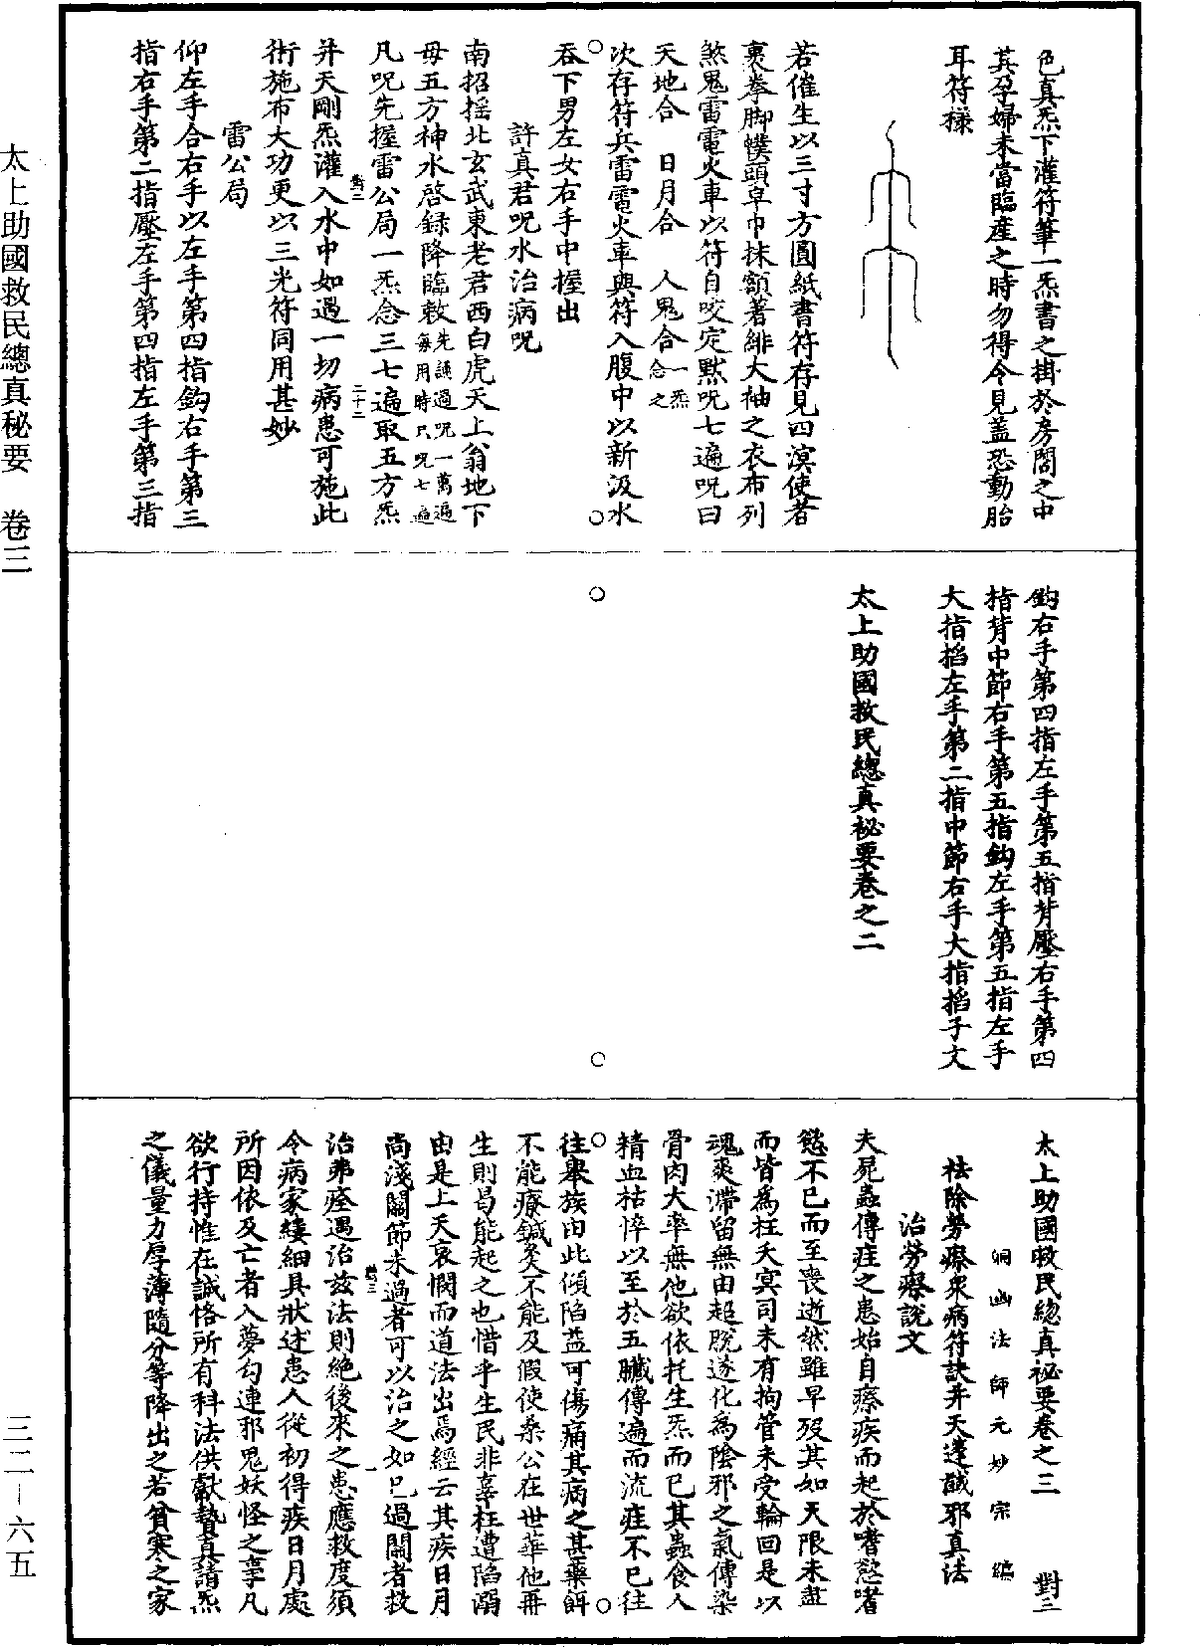 太上助國救民總真秘要　卷三
三二—六五
色真炁下灌符筆一炁書之掛於房閤之中
其孕婦未當臨產之時勿得令見蓋恐動胎
耳符樣
若催生以三寸方圓紙書符存見四溟使者
裹拳脚幞頭皁巾抹額著緋大袖之衣布列
煞鬼雷電火車以符自咬定黙呪七遍呪曰
天地合　日月合　人鬼合一炁念之
次存符兵雷電火車與符入腹中以新汲水
吞下男左女右手中握出
許真君呪水治病呪
南招搖北玄武東老君西白虎天上翁地下
母五方神水啓録降臨敕先誦過呪一萬遍每用時只呪七遍
凡呪先握雷公局一炁念三七遍取五方炁
并天剛炁灌入水中如遇一切病患可施此
術施布大功更以三光符同用甚妙
雷公局
仰左手合右手以左手第四指鈎右手第三
指右手第二指壓左手第四指左手第三指
鈎右手第四指左手第五指背壓右手第四
指背中節右手第五指鈎左手第五指左手
大指掐左手第二指中節右手大指掐子文
太上助國救民總真祕要卷之二
太上助國救民總真祕要卷之三　對三
洞幽法師元妙宗編
祛除勞瘵衆病符訣并天蓬馘邪真法
治勞瘵說文
夫屍蟲傳疰之患始自瘵疾而起於嗜慾嗜
慾不已而至喪逝然雖早歿其如天限未盡
而皆為枉夭冥司未有拘管未受輪回是以
魂爽滯留無由超脫遂化為陰邪之氣傳染
骨肉大率無他欲依托生炁而已其蟲食人
精血枯悴以至於五臟傳遍而流疰不已往
往舉族由此傾陷益可傷痛其病之甚藥餌
不能療鍼灸不能及假使桑公在世華他再
生則曷能起之也惜乎生民非辜枉遭陷溺
由是上天哀憫而道法出焉經云其疾日月
尚淺關節未過者可以治之如已過關者救
治弗痊遇治兹法則絶後來之患應救度須
令病家縷細具狀述患人從初得疾日月處
所因依及亡者入夢勾連邪鬼妖怪之事凡
欲行持惟在誠恪所有科法供獻贄真請炁
之儀量力厚薄隨分等降出之若貧寒之家